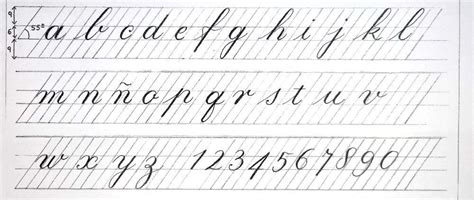 9 6 9 55° a b c d e f g h i j k l
m n ñ o p q r s t u v
w x y z 1 2 3 4 5 6 7 8 9 0